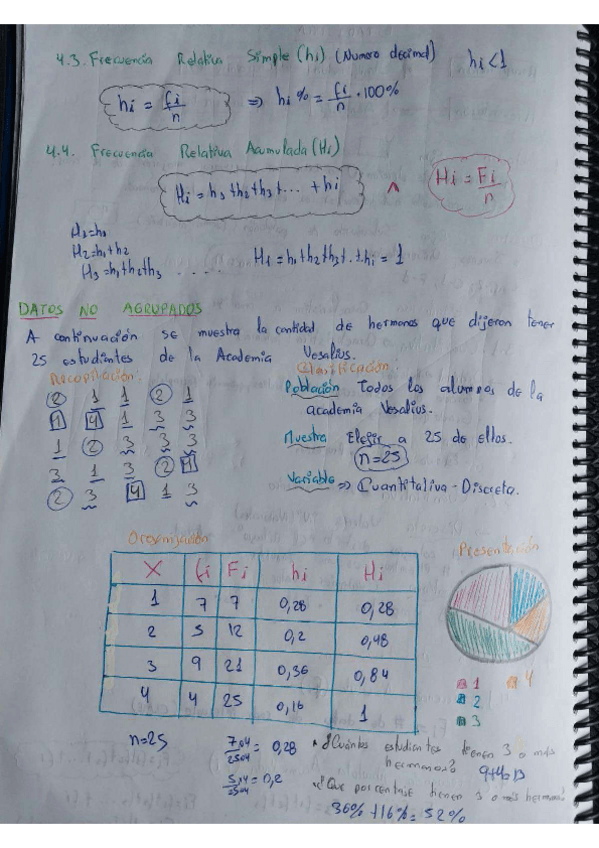 4.3. Frecuencia Relativa Simple (hi) (Numero decimal) hi<1
hi = fi/n ⇒ hi% = fi/n · 100%
4.4. Frecuencia Relativa Acumulada (Hi)
Hi = h1+h2+h3+... + hi ∧ Hi = Fi/n
H1=h1
H2=h1+h2
H3=h1+h2+h3 ..... Hi=h1+h2+h3+..+hi = 1
DATOS NO AGRUPADOS
A continuación se muestra la cantidad de hermanos que dijeron tener
25 estudiantes de la Academia Vesalius.
Recopilación: Clasificación:
2 1 1 2 1
1 4 1 3 3
1 2 3 3 3
3 1 3 2 4
2 3 4 1 3
Población Todos los alumnos de la
academia Vesalius.
Muestra Elegir a 25 de ellos.
n=25
Variable ⇒ Cuantitativa - Discreta.
Organización Presentación
X fi Fi hi Hi
1 7 7 0,28 0,28
2 5 12 0,2 0,48
3 9 21 0,36 0,84
4 4 25 0,16 1
1 4
2
3
n=25
7×4/25×4 = 0,28
5×4/25×4 = 0,2
¿Cuántos estudiantes tienen 3 o más
hermanos? 9+4=13
¿Que porcentaje tienen 3 o más hermanos?
36% + 16% = 52%